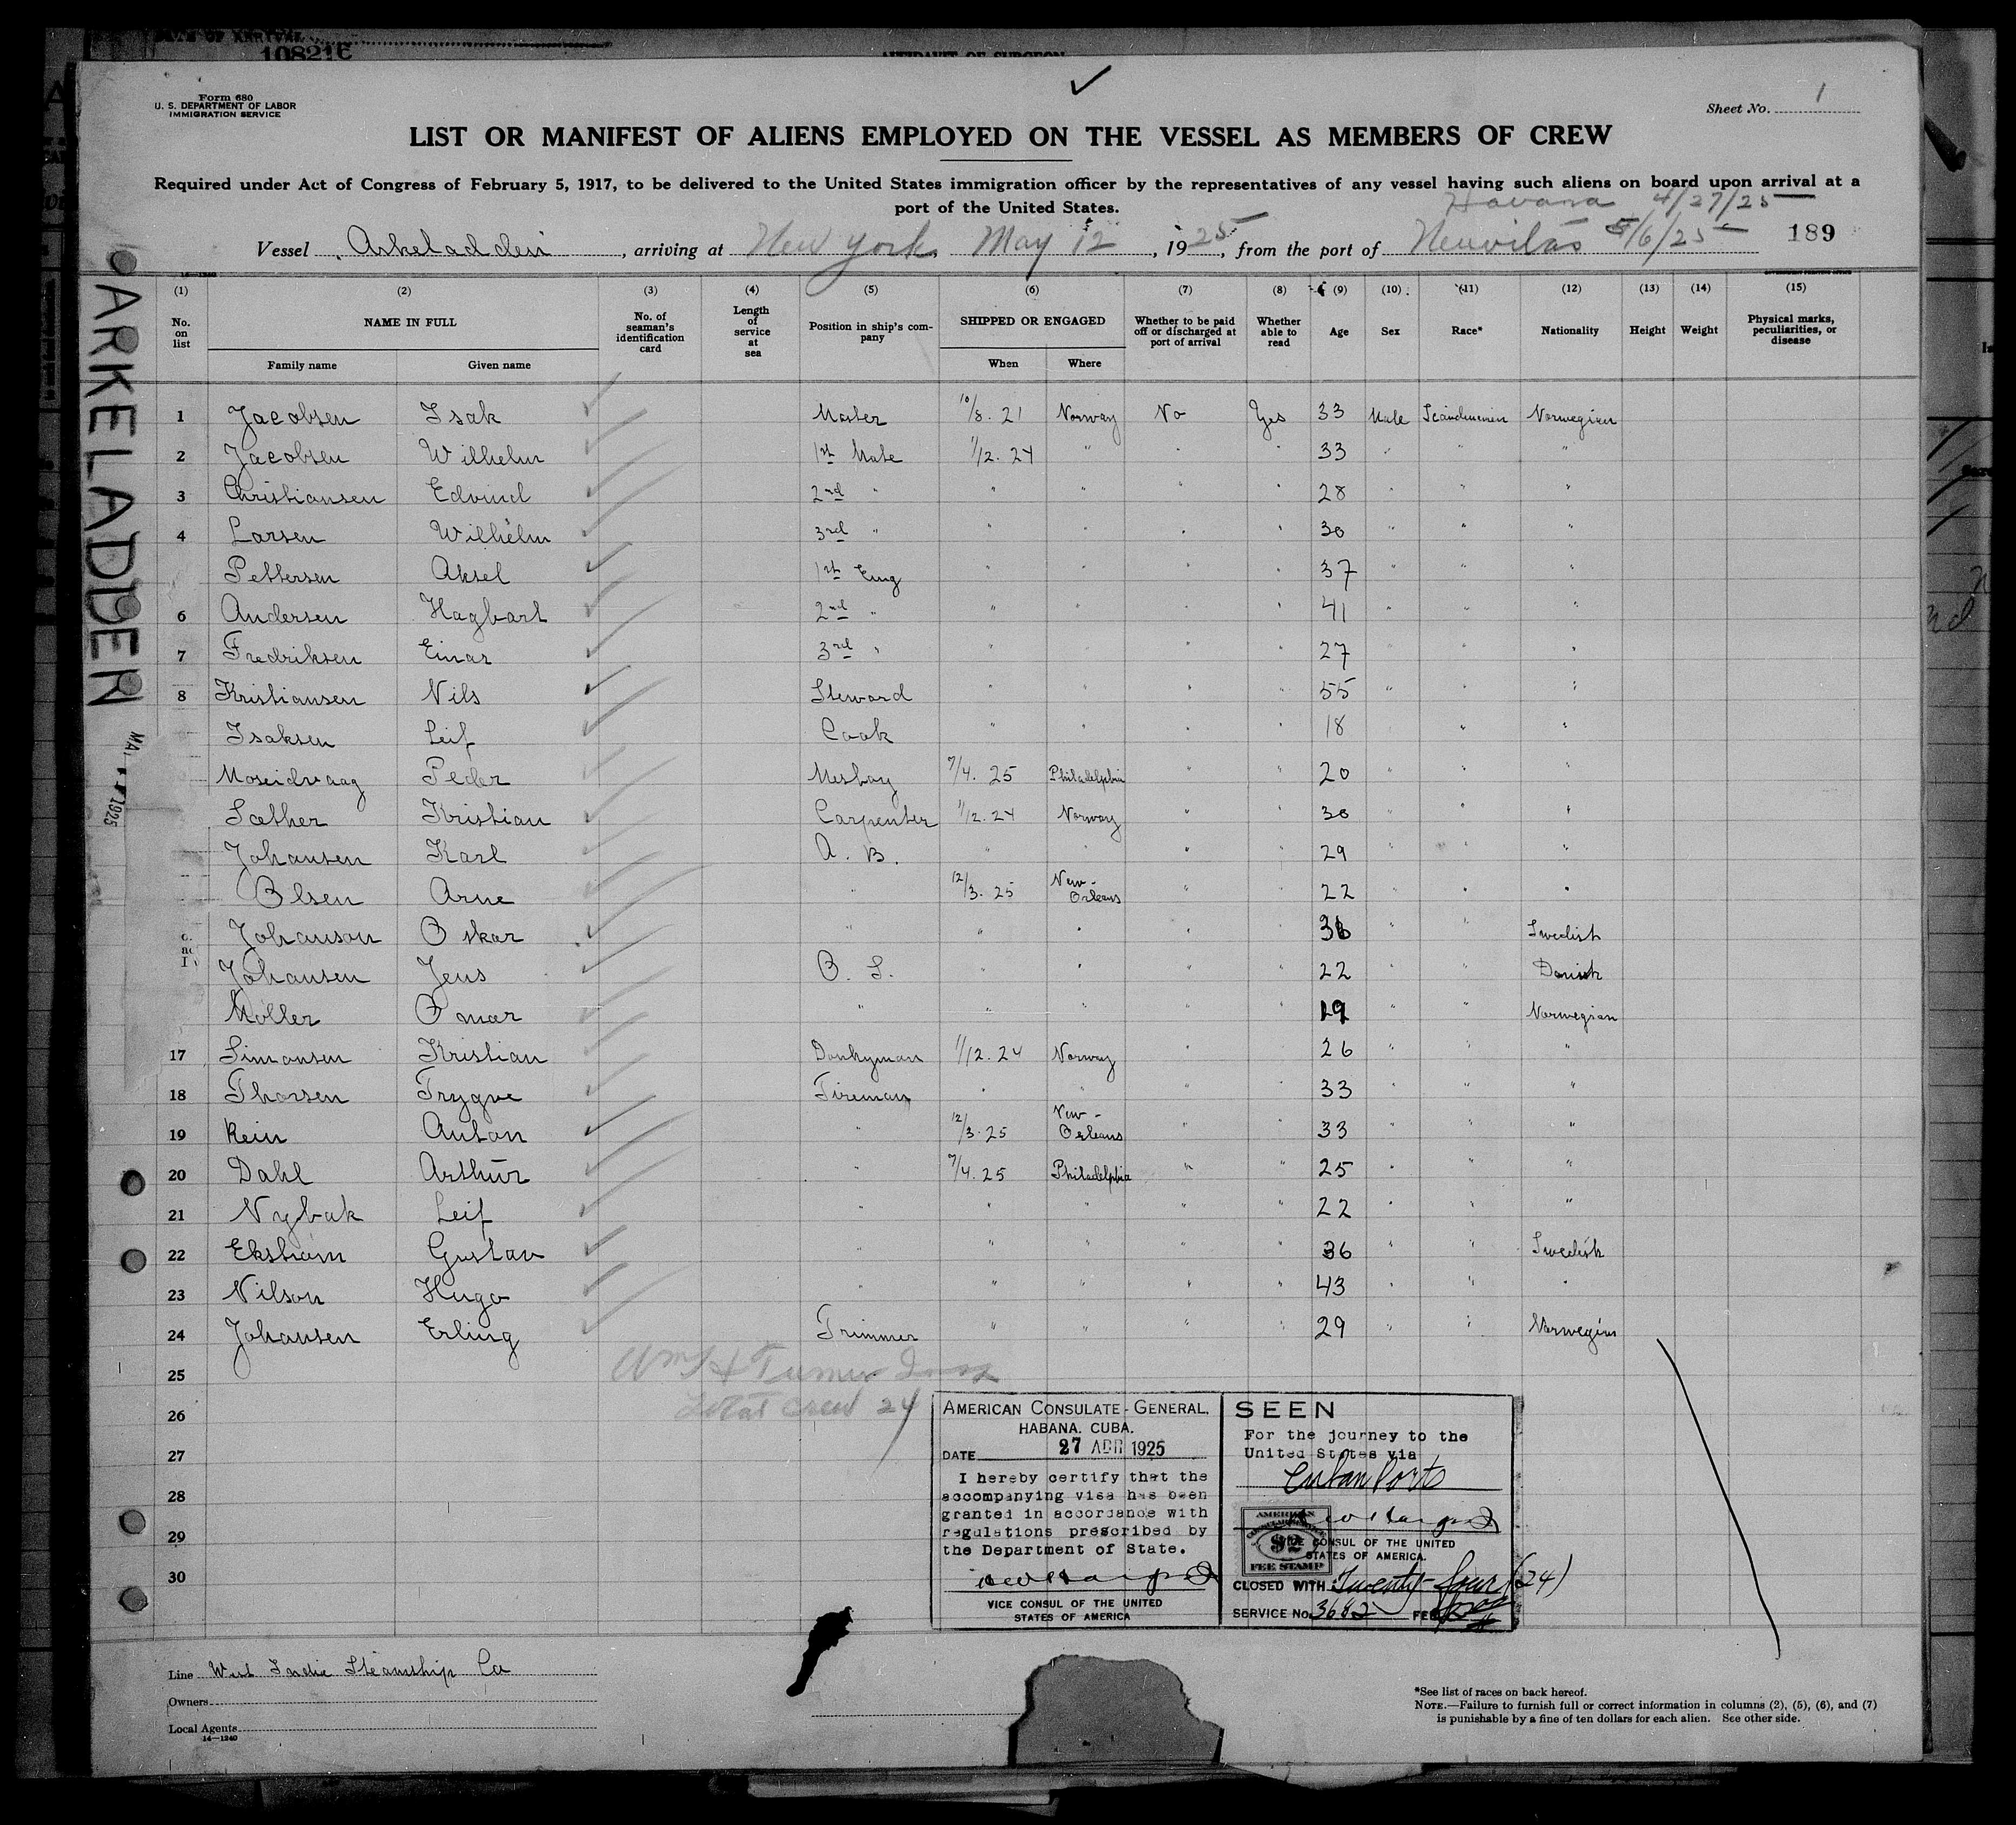 DATE OF ARRIVAL
10821C
AFFIDAVIT OF SURGEON
Form 680
U. S. DEPARTMENT OF LABOR
IMMIGRATION SERVICE
Sheet No. 1
LIST OR MANIFEST OF ALIENS EMPLOYED ON THE VESSEL AS MEMBERS OF CREW
Required under Act of Congress of February 5, 1917, to be delivered to the United States immigration officer by the representatives of any vessel having such aliens on board upon arrival at a
port of the United States.
Havana 4/27/25
Vessel Askeladden, arriving at New York May 12, 1925, from the port of Neuvitas 5/6/25 189
ARKELADDEN
1925
14—1240
(1) (2) (3) (4) (5) (6) (7) (8) (9) (10) (11) (12) (13) (14) (15)
No. on list NAME IN FULL No. of seaman's identification card Length of service at sea Position in ship's company SHIPPED OR ENGAGED Whether to be paid off or discharged at port of arrival Whether able to read Age Sex Race* Nationality Height Weight Physical marks, peculiarities, or disease
Family name Given name When Where
1 Jacobsen Isak Master 10/8. 21 Norway No Yes 33 Male Scandinavien Norwegian
2 Jacobsen Wilhelm 1st Mate 1/12. 24 " " " 33 " " "
3 Christiansen Edvind 2nd " " " " " 28 " " "
4 Larsen Wilhelm 3rd " " " " " 30 " " "
Pettersen Aksel 1st Eng " " " " 37 " " "
6 Andersen Hagbart 2nd " " " " " 41 " " "
7 Fredriksen Einar 3rd " " " " " 27 " " "
8 Kristiansen Nils Steward " " " " 55 " " "
Isaksen Leif Cook " " " " 18 " " "
Moseidvaag Peder Messboy 7/4. 25 Philadelphia " " 20 " " "
Sæther Kristian Carpenter 1/12. 24 Norway " " 30 " " "
Johansen Karl A. B. " " " " 29 " " "
Olsen Arne " 12/3. 25 New-Orleans " " 22 " " "
Johanson Oskar " " " " " 36 " " Swedish
Johansen Jens O. S. " " " " 22 " " Danish
Möller Omar " " " " " 19 " " Norwegian
17 Simonsen Kristian Donkyman 1/12. 24 Norway " " 26 " " "
18 Thorsen Trygve Fireman " " " " 33 " " "
19 Rein Anton " 12/3. 25 New-Orleans " " 33 " " "
20 Dahl Arthur " 7/4. 25 Philadelphia " " 25 " " "
21 Nybak Leif " " " " " 22 " " "
22 Ekström Gustav " " " " " 36 " " Swedish
23 Nilson Hugo " " " " " 43 " " "
24 Johansen Erling Trimmer " " " " 29 " " Norwegian
25
Wm H Turner Insp
Total crew 24
26
27
28
29
30
AMERICAN CONSULATE-GENERAL,
HABANA, CUBA.
DATE 27 ABR 1925
I hereby certify that the
accompanying visa has been
granted in accordance with
regulations prescribed by
the Department of State.
VICE CONSUL OF THE UNITED
STATES OF AMERICA
SEEN
For the journey to the
United States via
Cuban Ports
AMERICAN
CONSULAR SERVICE
$2
FEE STAMP
VICE CONSUL OF THE UNITED
STATES OF AMERICA.
CLOSED WITH Twenty-four (24)
SERVICE No. 3682 FEE
Line West India Steamship Co
Owners
Local Agents
14—1240
*See list of races on back hereof.
NOTE.—Failure to furnish full or correct information in columns (2), (5), (6), and (7)
is punishable by a fine of ten dollars for each alien. See other side.